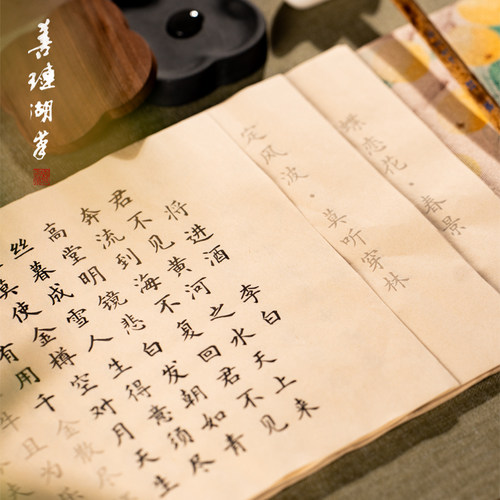 善璉湖筆
蝶恋花·春景
定风波·莫听穿林
将进酒 李白
君不见黄河之水天上来
奔流到海不复回君不见
高堂明镜悲白发朝如青
丝暮成雪人生得意须尽
莫使金樽空对月天生
有用千金散尽
牛且为乐
夫